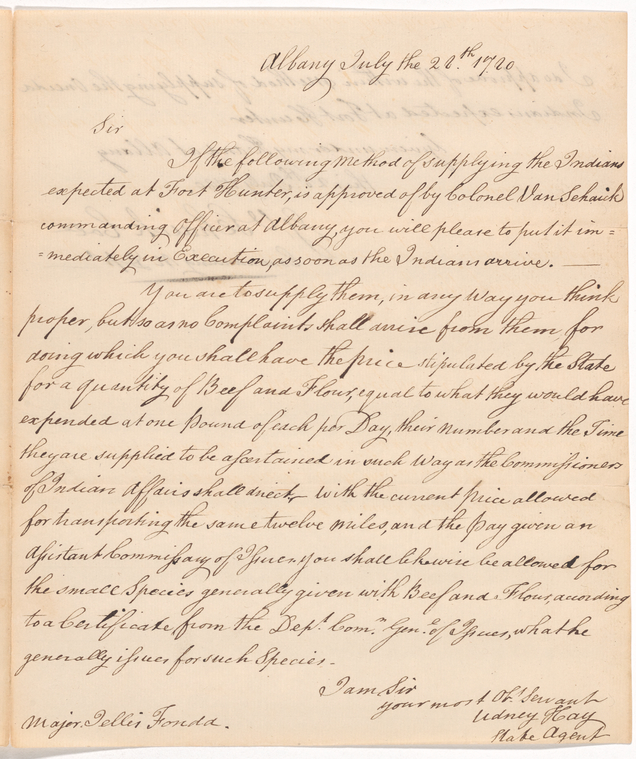 Albany July the 22.th 1720
Sir
If the following method of supplying the Indians
expected at Fort Hunter, is approved of by Colonel Van Schaick
commanding Officer at Albany, you will please to put it im=
=mediately in Execution, as soon as the Indians arrive. —
You are to supply them, in any Way you think
proper, but so as no Complaints shall arise from them, for
doing which you shall have the price stipulated by the State
for a quantity of Beef and Flour, equal to what they would have
expended at one pound of each per Day, their number and the Time
they are supplied to be ascertained in such Way as the Commissioners
of Indian Affairs shall direct — with the current price allowed
for transporting the same twelve miles, and the Pay given an
Assistant Commissary of Issues, you shall likewise be allowed for
the small Species generally given with Beef and Flour, acording
to a Certificate from the Dept. Com.y Gen.l of Issues, what he
generally issues for such Species. -
I am Sir
your most Ob.t Servant
Udney Hay
State Agent
Major Jellis Fonda.